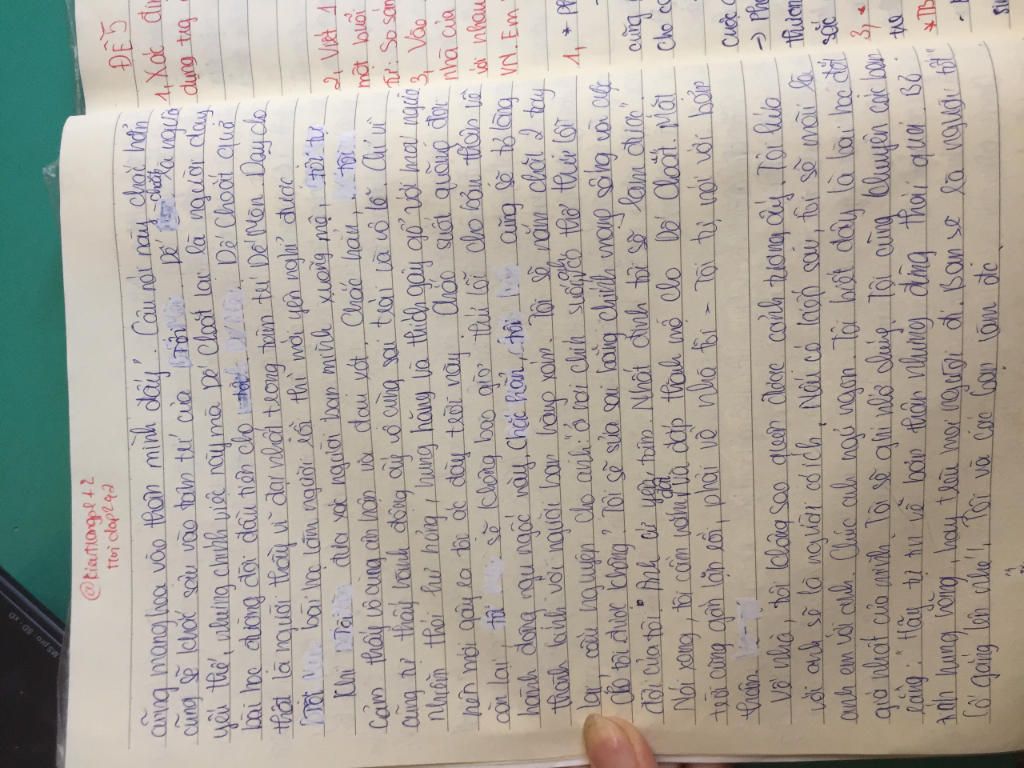 @tientrang1+2
cũng mang họa vào thân mình đấy". Câu nói này chai hẳn
cũng sẽ khắc sâu vào tâm trí của Tôi Dế là người
yếu thế, nhưng chính việc này mà Dế Choắt lại là người dạy
bài học đường đời đầu tiên cho Dế Choắt quả
thật là người thầy vĩ đại nhất trong tâm trí Dế Mèn. Dạy cho
Tôi bài học làm người rồi thì mới yên nghỉ được
Khi Tôi đưa xác người bạn mình xuống mộ, tôi tự
cảm thấy vô cùng ân hận và đau xót. Chắc hẳn, tôi
cũng tự thấy hành động ấy vô cùng sai trái và vô lễ. Chỉ vì
Nhiên thói hư hống, hung hăng là thiếu gây gổ với mọi người
nên mới gây ra tội ác dày trời này. Chao suốt quãng đời
còn lại tôi sẽ không bao giờ tha lỗi cho bản thân về
hành động ngu ngốc này, chắc hẳn, tôi cũng sẽ tỏ lòng
thành kính với người bạn hàng xóm. Tôi sẽ nắm chặt 2 tay
lại cầu nguyện cho anh: "Ở nơi chín suối, có thể tha thứ lỗi
đó tôi được không? Tôi sẽ sửa sai bằng chính mạng sống và cuộc
đời của tôi. Anh cứ yên tâm. Nhất định tôi sẽ làm được".
Nói xong, tôi cầm nắm đất đắp thành mồ cho Dế Choắt. Mắt
trời cũng gần lặn rồi, phải về nhà thôi - Tôi tự nói với bản
thân.
Về nhà, tôi không sao quên được cảnh tượng ấy, Tôi hứa
với anh sẽ là người có ích, Nếu có kiếp sau, tôi sẽ mãi là
anh em với anh. Chúc anh ngủ ngon. Tôi biết đây là lời hứa đắt
giá nhất của mình. Tôi sẽ ghi nhớ chúng. Tôi cũng khuyên các bạn
rằng: "Hãy tự tin về bản thân nhưng đừng thái quá. Bỏ
tính hung hăng, hay trêu mọi người đi. Bạn sẽ là người tốt"
Cố gắng lên nhé!! Tôi và các bạn làm đc
ĐỀ 5
1. Xác định
dụng tug
2, Viết 1
một buổi
Từ: So sán
3, Vào
nhà của
với nhau
VN. Em
1, * P
cũng
cho c
cuộc
-> Ph
thươn
sắc
3, *
* Tb